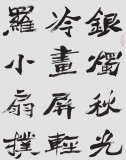 銀燭秋光
冷畫屏輕
羅小扇撲